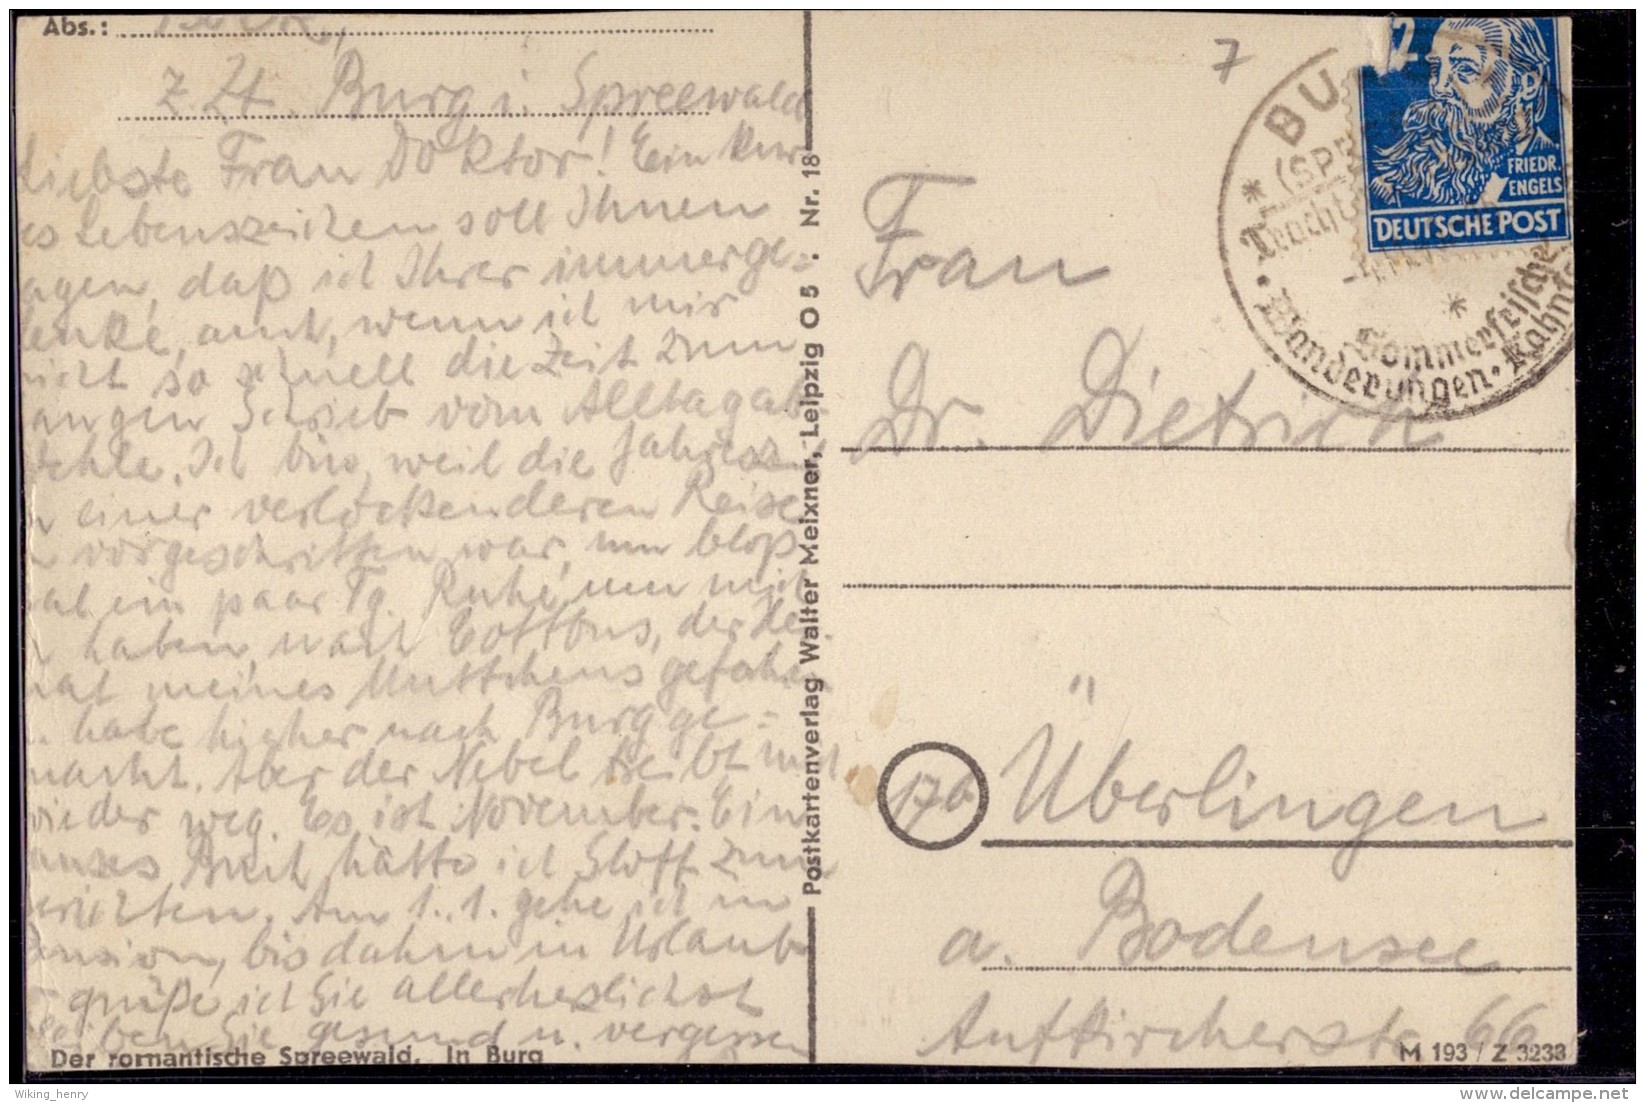 Abs.:
z. Zt. Burg i. Spreewald
Liebste Frau Doktor! Ein kur
es Lebenszeichen soll Ihnen
agen, daß ich Ihrer immerge=
enke, auch, wenn ich mir
nicht so schnell die Zeit zum
angen Schrieb vom Alltag ab
tehle. Ich bin, weil die Jahres
einer verlockenderen Reise
vorgeschritten war, um bloß
mal ein paar Tg. Ruhe um mich
haben, nach Cottbus, der Hei
mat meines Muttchens gefahren
u. habe hierher nach Burg ge=
macht. Aber der Nebel treibt mich
wieder weg. Es ist November. Ein
ganzes Buch hätte ich Stoff zum
berichten. Am 1.1. gehe ich in
Pension, bis dahin in Urlaub
grüße ich Sie allerherzlichst
bleiben Sie gesund u. vergessen
Der romantische Spreewald. In Burg
Postkartenverlag Walter Meixner, Leipzig O 5 · Nr. 18
7
2
FRIEDR.
ENGELS
DEUTSCHE POST
BU
(SPR
Sommerfrische
Wanderungen · Kahnf
Frau
Dr. Dietrich
17b
Überlingen
a. Bodensee
Aufkircherstr. 66
M 193 / Z 3233
Wiking_henry
www.delcampe.net